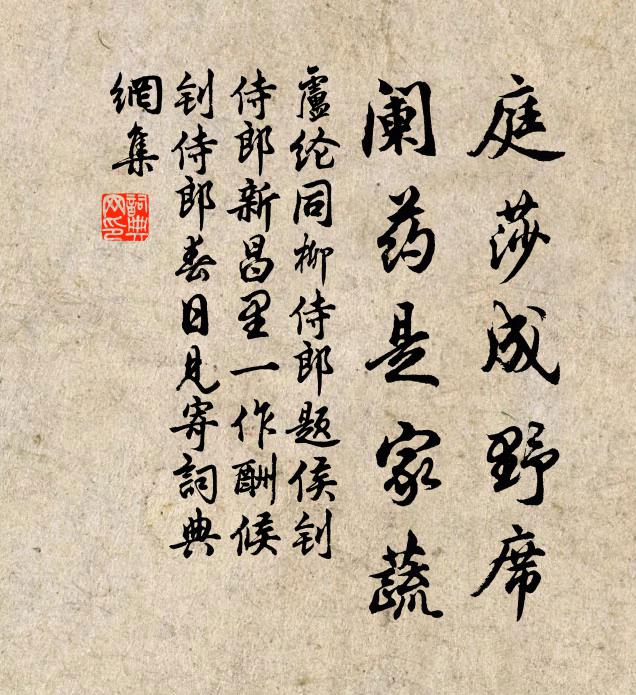 庭莎成野席
阑药是家蔬
盧纶同柳侍郎题侯钊
侍郎新昌里一作酬候
钊侍郎春日见寄詞典
網集
詞典
网印